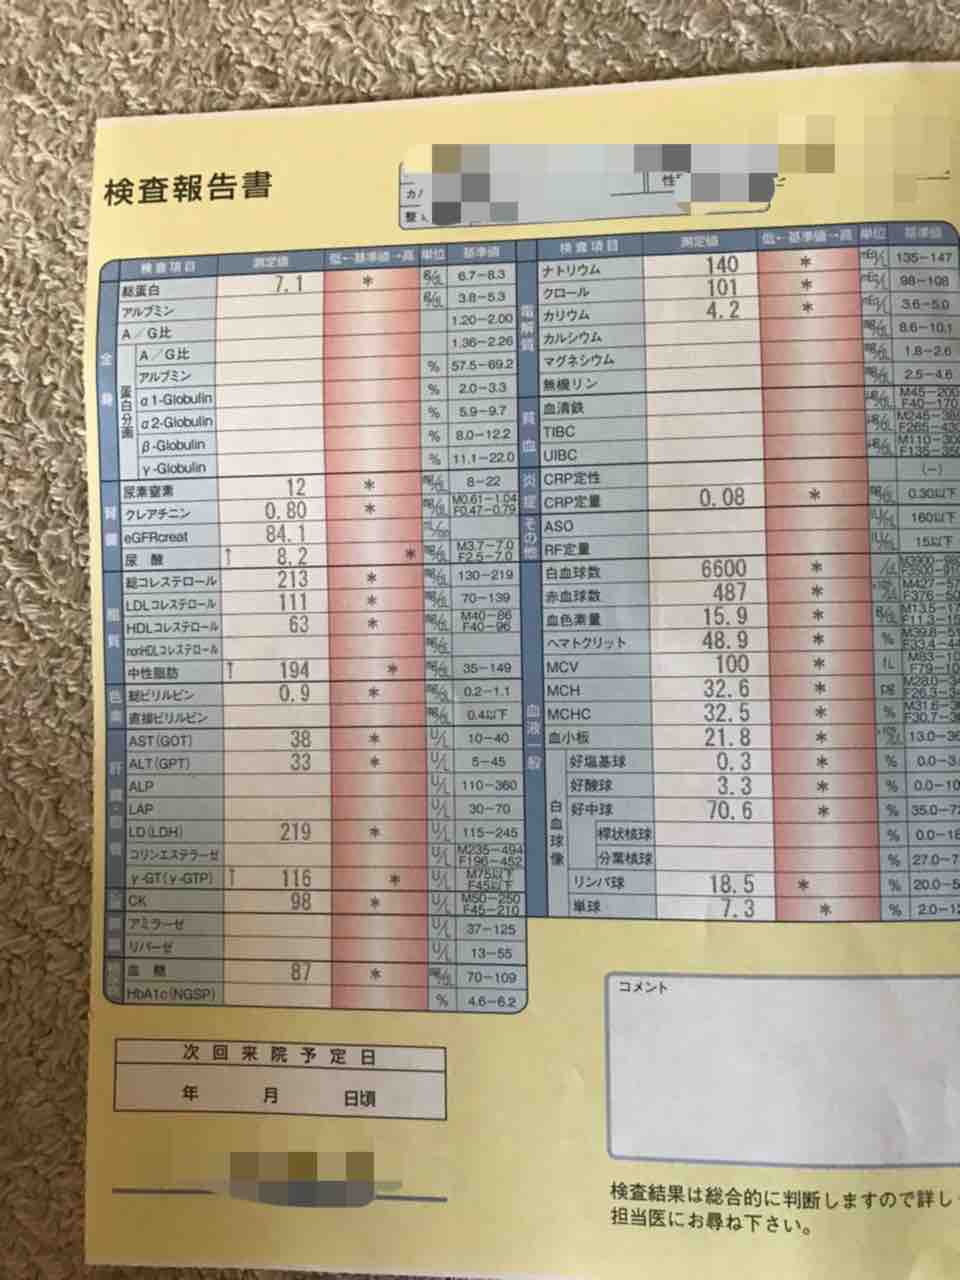 検査報告書
検査項目 測定値 低←基準値→高 単位 基準値
全身
総蛋白 7.1 * g/dL 6.7-8.3
アルブミン g/dL 3.8-5.3
A/G比 1.20-2.00
蛋白分画
A/G比 1.36-2.26
アルブミン % 57.5-69.2
α1-Globulin % 2.0-3.3
α2-Globulin % 5.9-9.7
β-Globulin % 8.0-12.2
γ-Globulin % 11.1-22.0
尿素窒素 12 * mg/dL 8-22
クレアチニン 0.80 * mg/dL M0.61-1.04 F0.47-0.79
eGFRcreat 84.1
尿酸 ↑ 8.2 * mg/dL M3.7-7.0 F2.5-7.0
脂質
総コレステロール 213 * mg/dL 130-219
LDLコレステロール 111 * mg/dL 70-139
HDLコレステロール 63 * mg/dL M40-86 F40-96
nonHDLコレステロール mg/dL
中性脂肪 ↑ 194 * mg/dL 35-149
色素
総ビリルビン 0.9 * mg/dL 0.2-1.1
直接ビリルビン mg/dL 0.4以下
AST(GOT) 38 * U/L 10-40
ALT(GPT) 33 * U/L 5-45
ALP U/L 110-360
LAP U/L 30-70
LD(LDH) 219 * U/L 115-245
コリンエステラーゼ U/L M235-494 F196-452
γ-GT(γ-GTP) ↑ 116 * U/L M75以下 F45以下
CK 98 * U/L M50-250 F45-210
アミラーゼ U/L 37-125
リパーゼ U/L 13-55
血糖 87 * mg/dL 70-109
HbA1c(NGSP) % 4.6-6.2
検査項目 測定値 低←基準値→高 単位 基準値
電解質
ナトリウム 140 * mEq/L 135-147
クロール 101 * mEq/L 98-108
カリウム 4.2 * mEq/L 3.6-5.0
カルシウム mg/dL 8.6-10.1
マグネシウム mg/dL 1.8-2.6
無機リン mg/dL 2.5-4.6
貧血
血清鉄 μg/dL M45-200 F40-170
TIBC μg/dL
UIBC μg/dL
炎症・その他
CRP定性 (-)
CRP定量 0.08 * mg/dL 0.30以下
ASO IU/mL 160以下
RF定量 IU/mL 15以下
血液一般
白血球数 6600 *
赤血球数 487 *
血色素量 15.9 * g/dL
ヘマトクリット 48.9 * %
MCV 100 * fL
MCH 32.6 * pg
MCHC 32.5 * %
血小板 21.8 *
白血球像
好塩基球 0.3 * %
好酸球 3.3 * %
好中球 70.6 * %
桿状核球 %
分葉核球 %
リンパ球 18.5 * %
単球 7.3 * %
次回来院予定日
年 月 日頃
コメント
検査結果は総合的に判断しますので詳し
担当医にお尋ね下さい。